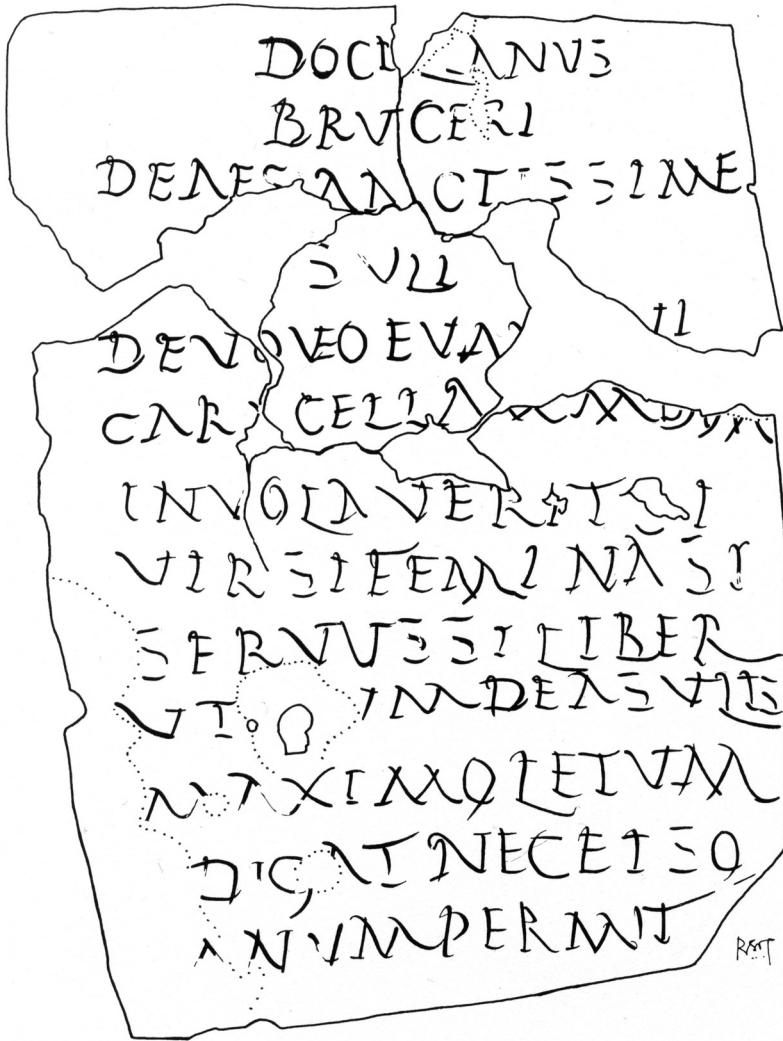 DOCILIANVS
BRVCERI
DEAE SANCTISSIME
SVLI
DEVOVEO EVM
CARACELLAM
INVOLAVERIT SI
VIR SI FEMINA SI
SERVVS SI LIBER
VT DEA SVLIS
MAXIMO LETVM
DIGAT NEC EI SO
NVM PERMIT
RSOT